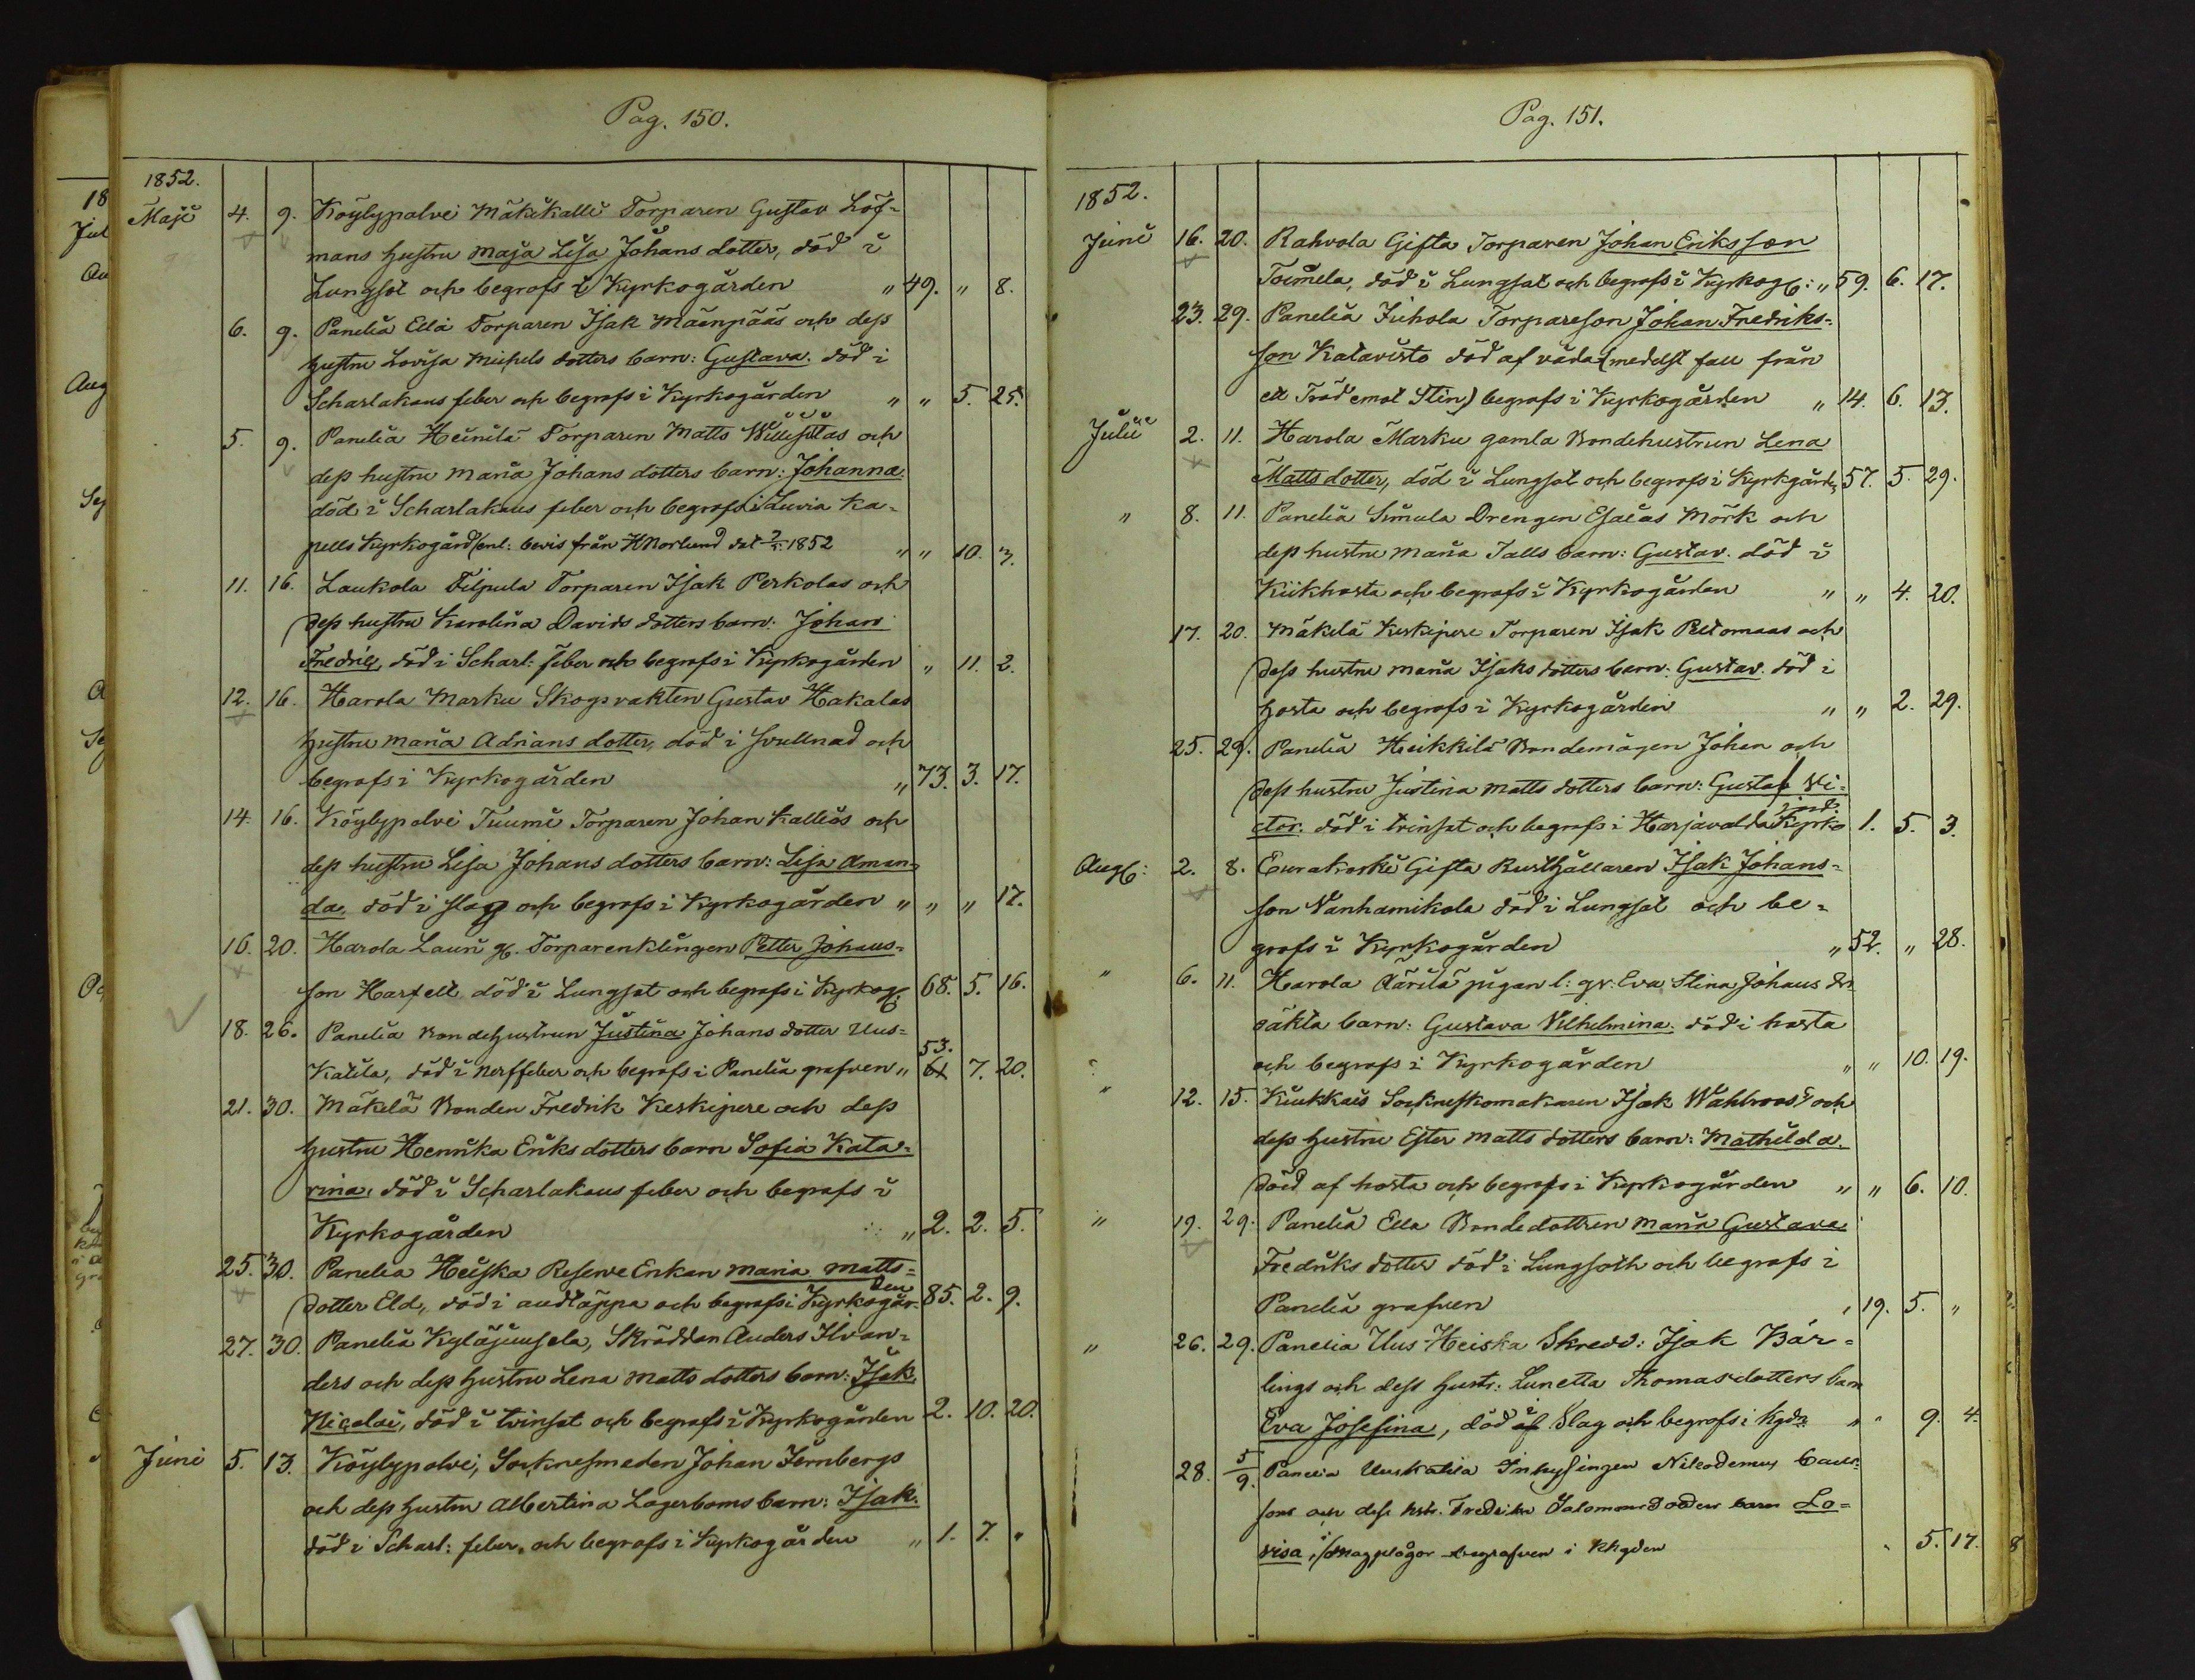 Pag. 150.
1852.
Maji 4. 9. Köylypolvi Mäkikalli Torparen Gustav Löf=
mans hustru Maja Lisa Johans dotter, död i
Lungsot och begrofs i Kyrkogården " 49. " 8.
6. 9. Panelia Ella Torparen Isak Mäenpääs och dess
hustru Lovisa Michels dotters barn: Gustava. död i
Scharlakans feber och begrofs i Kyrkogården " " 5. 25.
5. 9. Panelia Heinilä Torparen Matts och
dess hustru Maria Johans dotters barn: Johanna.
död i Scharlakans feber och begrofs i Luvia Ka=
pells Kyrkogård enl: bevis från H Norlund dat 1852 " " 10. 3.
11. 16. Laukola Filpula Torparen Isak Perkolas och
dess hustru Karolina Davids dotters barn: Johan
Fredric, död i Scharl: feber och begrofs i Kyrkogården " 11. 2.
12. 16. Harola Marku Skogsvakten Gustav Hakalas
hustru Maria Adrians dotter, död i svullnad och
begrofs i Kyrkogården " 73. 3. 17.
14. 16. Köylypolvi Tuumi Torparen Johan Kalliös och
dess hustru Lisa Johans dotters barn: Lisa Aman=
da, död i slag och begrofs i Kyrkogården " " " 17.
16. 20. Harola Lauri g. Torparenklingen Petter Johans=
son Harfelt död i Lungsot och begrofs i Kyrkog: 68. 5. 16.
18. 26. Panelia Bondehustrun Justina Johans dotter Uus=
53.
Katila, död i Nerffeber och begrofs i Panelia grafven " 61 7. 20.
21. 30. Mäkelä Bonden Fredrik Keskipere och dess
hustru Henrika Eriks dotters barn Sofia Kata=
rina, död i Scharlakans feber och begrofs i
Kyrkogården " 2. 2. 5.
25. 30. Panelia Heiska Reserve Enkan Maria Matts=
dotter Eld, död i andtäppa och begrofs i Kyrkogår=den 85. 2. 9.
27. 30. Panelia Kyläjuusela, Skräddan Anders Ilvan=
ders och dess hustru Lena Matts dotters barn: Isak
Nicolai, död i tvinsot och begrofs i Kyrkogården 2. 10. 20.
Juni 5. 13. Köylypolvi, Socknesmeden Johan Jernbergs
och dess hustru Albertina Lagerboms barn: Isak.
död i Scharl: feber, och begrofs i Kyrkogården " 1. 7. "
Pag. 151.
1852.
Juni 16. 20. Rahvola Gifta Torparen Johan Eriksson
Toimela, död i Lungsot och begrofs i Kyrkog: " 59. 6. 17.
23. 29. Panelia Juhola Torpareson Johan Fredriks=
son Katavisto död af våda (medelst fall från
ett Träd emot Stin) begrofs i Kyrkogården " 14. 6. 13.
Julii 2. 11. Harola Marku gamla Bondehustrun Lena
Matts dotter, död i Lungsot och begrofs i Kyrkgård: 57. 5. 29.
" 8. 11. Panelia Simula Drengen Esaias Mörk och
dess hustru Maria Talls barn: Gustav. död i
Kikhosta och begrofs i Kyrkogården " " 4. 20.
17. 20. Mäkelä Keskipere Torparen Isak Peltomaas och
dess hustru Maria Isaks dotters barn: Gustav. död i
hosta och begrofs i Kyrkogården " " 2. 29.
25. 29. Panelia Heikkilä Bondemågen Johan och
dess hustru Justina Matts dotters barn: Gustaf Vi=
ctor. död i tvinsot och begrofs i Harjavalda Kyrko 1. 5. 3.
Aug: 2. 8. Eurakoski Gifta Rusthållaren Isak Johans=
son Vanhamikola död i Lungsot och be=
grofs i Kyrkogården " 52. " 28.
" 6. 11. Harola Äärilä pigan l: gv: Eva Stina Johans dr
oäkta barn: Gustava Vilhelmina. död i hosta
och begrofs i Kyrkogården " " 10. 19.
" 12. 15. Kiukkais Socknskomakaren Isak Wahlroos's och
dess hustru Ester Matts dotters barn: Mathilda.
död af hosta och begrofs i Kyrkogården " " 6. 10.
" 19. 29. Panelia Ella Bondedottren Maria Gustava
Fredriks dotter död i Lungsoth och begrofs i
Panelia grafven " 19. 5. "
" 26. 29. Panelia Uus-Heiska Skredd: Isak Bär=
lings och dess hustr: Lunetta Thomasdotters barn
Eva Josefina, död af Slag och begrofs i Kgdn " " 9. 4.
28. 5/9. Panelia Uuskatila Inhysingen Nikodemus
sons och dess hstr. Fredrika Salomons dotters barn Lo=
visa, i magplågor begrafven i Khgden " 5. 17.